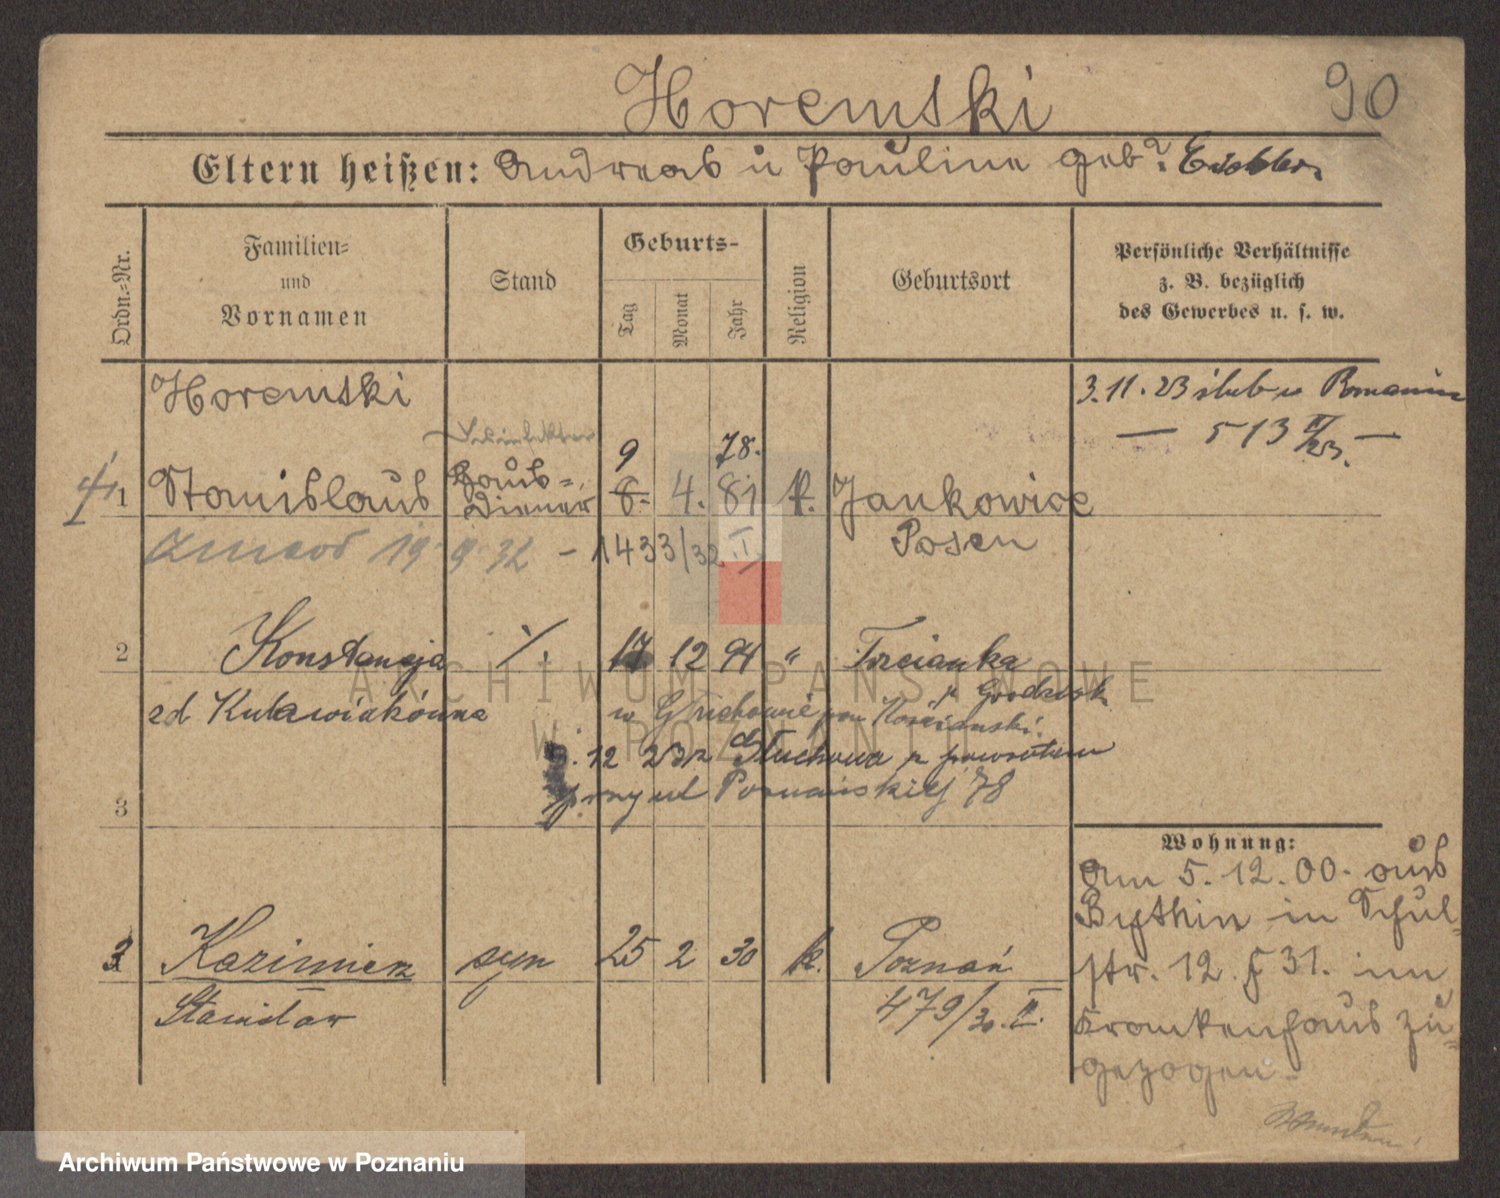 Horemski
90
Eltern heißen: Andreas u Pauline geb.
Ordn.-Nr.
Familien-
und
Vornamen
Stand
Geburts-
Tag
Monat
Jahr
Religion
Geburtsort
Persönliche Verhältnisse
z. B. bezüglich
des Gewerbes u. s. w.
Horemski
3.11.23 ślub w
— 513 II/23. —
9 78.
1 Stanislaus Haus-
Diener 8. 4. 81 k. Jankowice
Posen
zmarł 19 9 32 – 1433/32 II
2 Konstancja ./. 17 12 94 " Trcianka
p Grodzisk
zd Kulawiakówna
w Głuchowie pow Kościański.
3. 12 23 z Głuchowa z powrotem
przy ul Poznańskiej 78
3
Wohnung:
Am 5. 12. 00. aus
Bythin in Schul-
str. 12. 31. im
Krankenhaus zu-
gezogen.
3 Kazimierz syn 25 2 30 k. Poznań
Stanisław
479/30. II.
ARCHIWUM PAŃSTWOWE
W POZNANIU
Archiwum Państwowe w Poznaniu